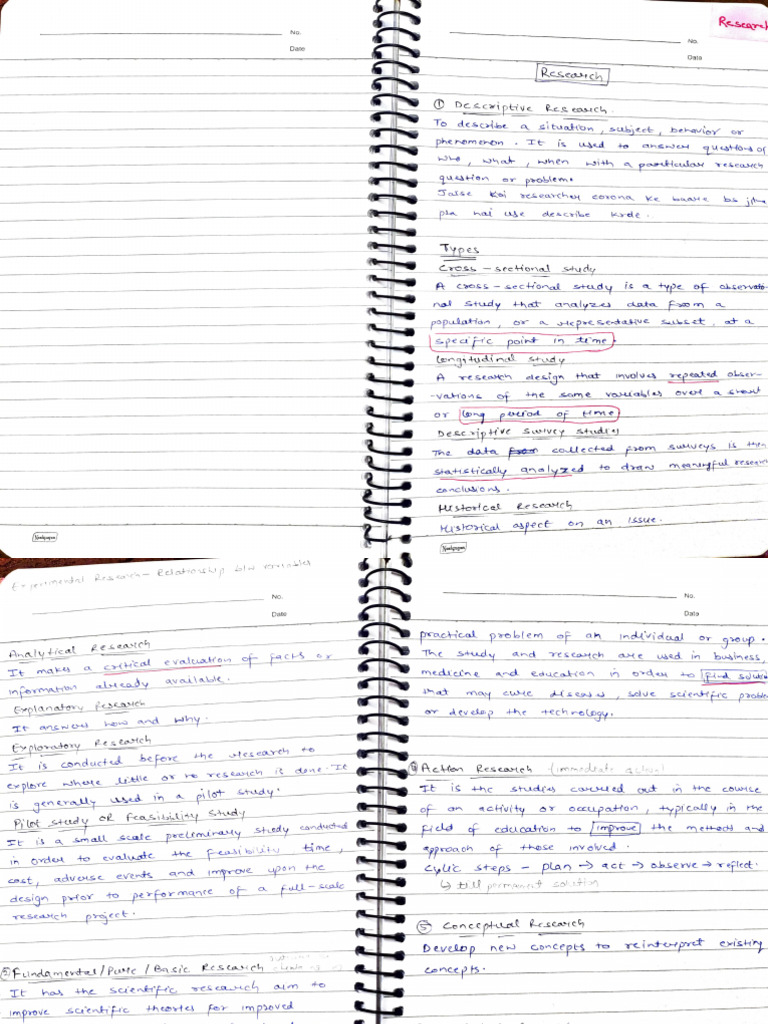 No.
Date
Neelgagan
Research
No.
Date
Research
① Descriptive Research
To describe a situation, subject, behavior or
phenomenon. It is used to answer questions of
who, what, when with a particular research
question or problem.
Jaise koi researcher corona ke baare bs jitna
pta hai use describe krde.
Types
Cross-sectional study
A cross-sectional study is a type of observatio-
nal study that analyzes data from a
population, or a representative subset, at a
specific point in time
Longitudinal study
A research design that involves repeated obser-
-vations of the same variables over a short
or long period of time
Descriptive survey studies
The data from collected from surveys is then
statistically analyzed to draw meaningful research
conclusions.
Historical Research
Historical aspect on an issue.
Neelgagan
Experimental Research - Relationship b/w variables
No.
Date
Analytical Research
It makes a critical evaluation of facts or
information already available.
Explanatory Research
It answers how and why.
Exploratory Research
It is conducted before the research to
explore where little or no research is done. It
is generally used in a pilot study.
Pilot study OR Feasibility Study
It is a small scale preliminary study conducted
in order to evaluate the feasibility time,
cost, adverse events and improve upon the
design prior to performance of a full-scale
research project.
② Fundamental/Pure/Basic Research
It has the scientific research aim to
improve scientific theories for improved
No.
Date
practical problem of an individual or group.
The study and research are used in business,
medicine and education in order to find solution
that may cure diseases, solve scientific problem
or develop the technology.
Action Research (immediate action)
It is the studies carried out in the course
of an activity or occupation, typically in the
field of education to improve the methods and
approach of those involved.
Cyclic steps - plan → act → observe → reflect.
↳ till permanent solution
⑤ Conceptual Research
Develop new concepts to reinterpret existing
concepts.